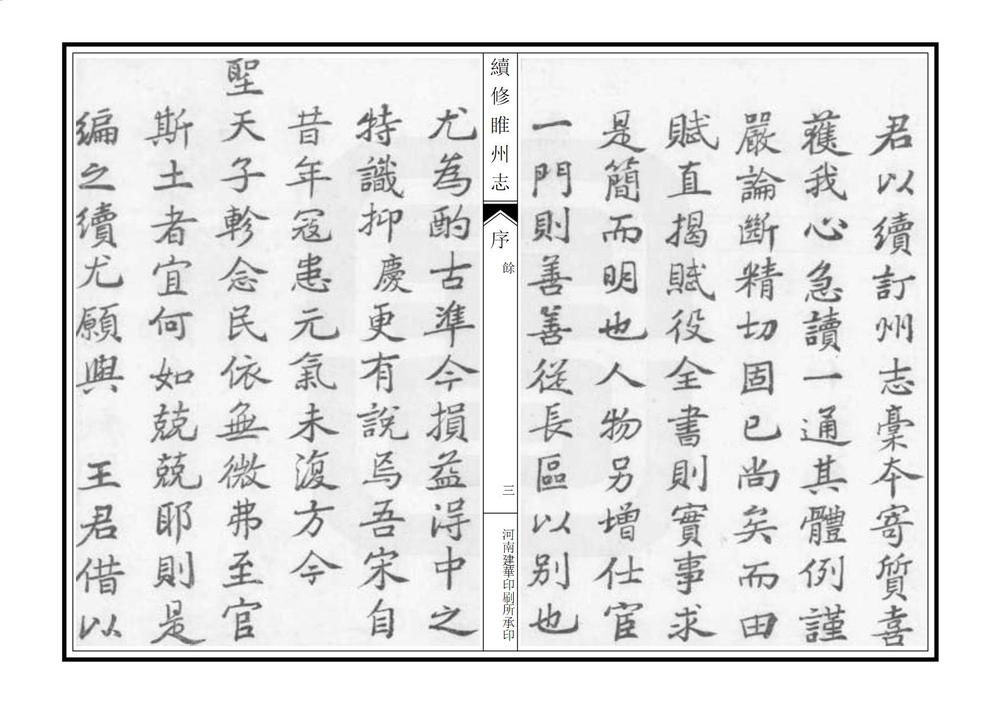 君以續訂州志稾本寄質喜
獲我心急讀一通其體例謹
嚴論斷精切固已尚矣而田
賦直揭賦役全書則實事求
是簡而明也人物另增仕宦
一門則善善從長區以別也
續修睢州志
序
餘
三
河南建華印刷所承印
尤為酌古準今損益得中之
特識抑慶更有說焉吾宋自
昔年寇患元氣未復方今
聖天子軫念民依無微弗至官
斯土者宜何如兢兢耶則是
編之續尤願與 王君借以